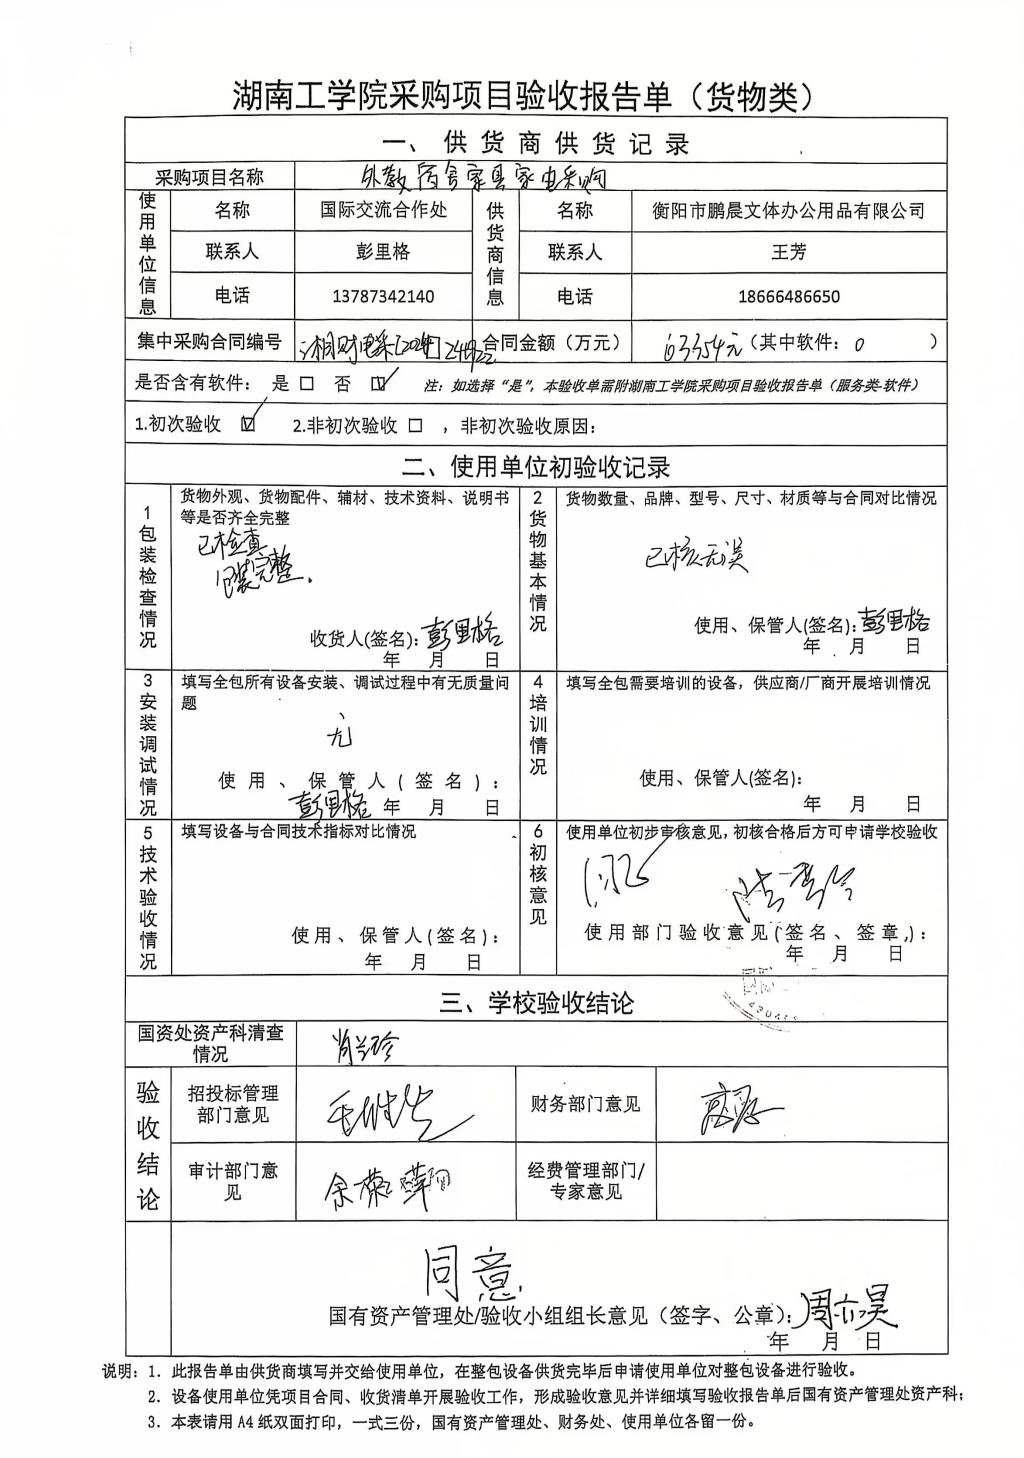 湖南工学院采购项目验收报告单（货物类）
一、供货商供货记录
采购项目名称 外教宿舍家具家电采购
使用单位信息 名称 国际交流合作处 供货商信息 名称 衡阳市鹏晨文体办公用品有限公司
联系人 彭里格 联系人 王芳
电话 13787342140 电话 18666486650
集中采购合同编号 合同金额（万元） 63354元（其中软件：0 ）
是否含有软件： 是 □ 否 ☑ 注：如选择“是”，本验收单需附湖南工学院采购项目验收报告单（服务类-软件）
1.初次验收 ☑ 2.非初次验收 □ ，非初次验收原因：
二、使用单位初验收记录
1包装检查情况
货物外观、货物配件、辅材、技术资料、说明书
等是否齐全完整
已检查
包装完整.
收货人(签名): 彭里格
年 月 日
2货物基本情况
货物数量、品牌、型号、尺寸、材质等与合同对比情况
已核无误
使用、保管人(签名): 彭里格
年 月 日
3安装调试情况
填写全包所有设备安装、调试过程中有无质量问
题
无
使用、保管人(签名):
彭里格 年 月 日
4培训情况
填写全包需要培训的设备，供应商/厂商开展培训情况
使用、保管人(签名):
年 月 日
5技术验收情况
填写设备与合同技术指标对比情况
使用、保管人(签名):
年 月 日
6初核意见
使用单位初步审核意见，初核合格后方可申请学校验收
使用部门验收意见(签名、签章,):
年 月 日
三、学校验收结论
国资处资产科清查
情况
肖兰珍
验收结论
招投标管理
部门意见
财务部门意见
审计部门意
见
经费管理部门/
专家意见
同意
国有资产管理处/验收小组组长意见（签字、公章）:
年 月 日
说明：1. 此报告单由供货商填写并交给使用单位，在整包设备供货完毕后申请使用单位对整包设备进行验收。
2. 设备使用单位凭项目合同、收货清单开展验收工作，形成验收意见并详细填写验收报告单后国有资产管理处资产科；
3. 本表请用 A4 纸双面打印，一式三份，国有资产管理处、财务处、使用单位各留一份。